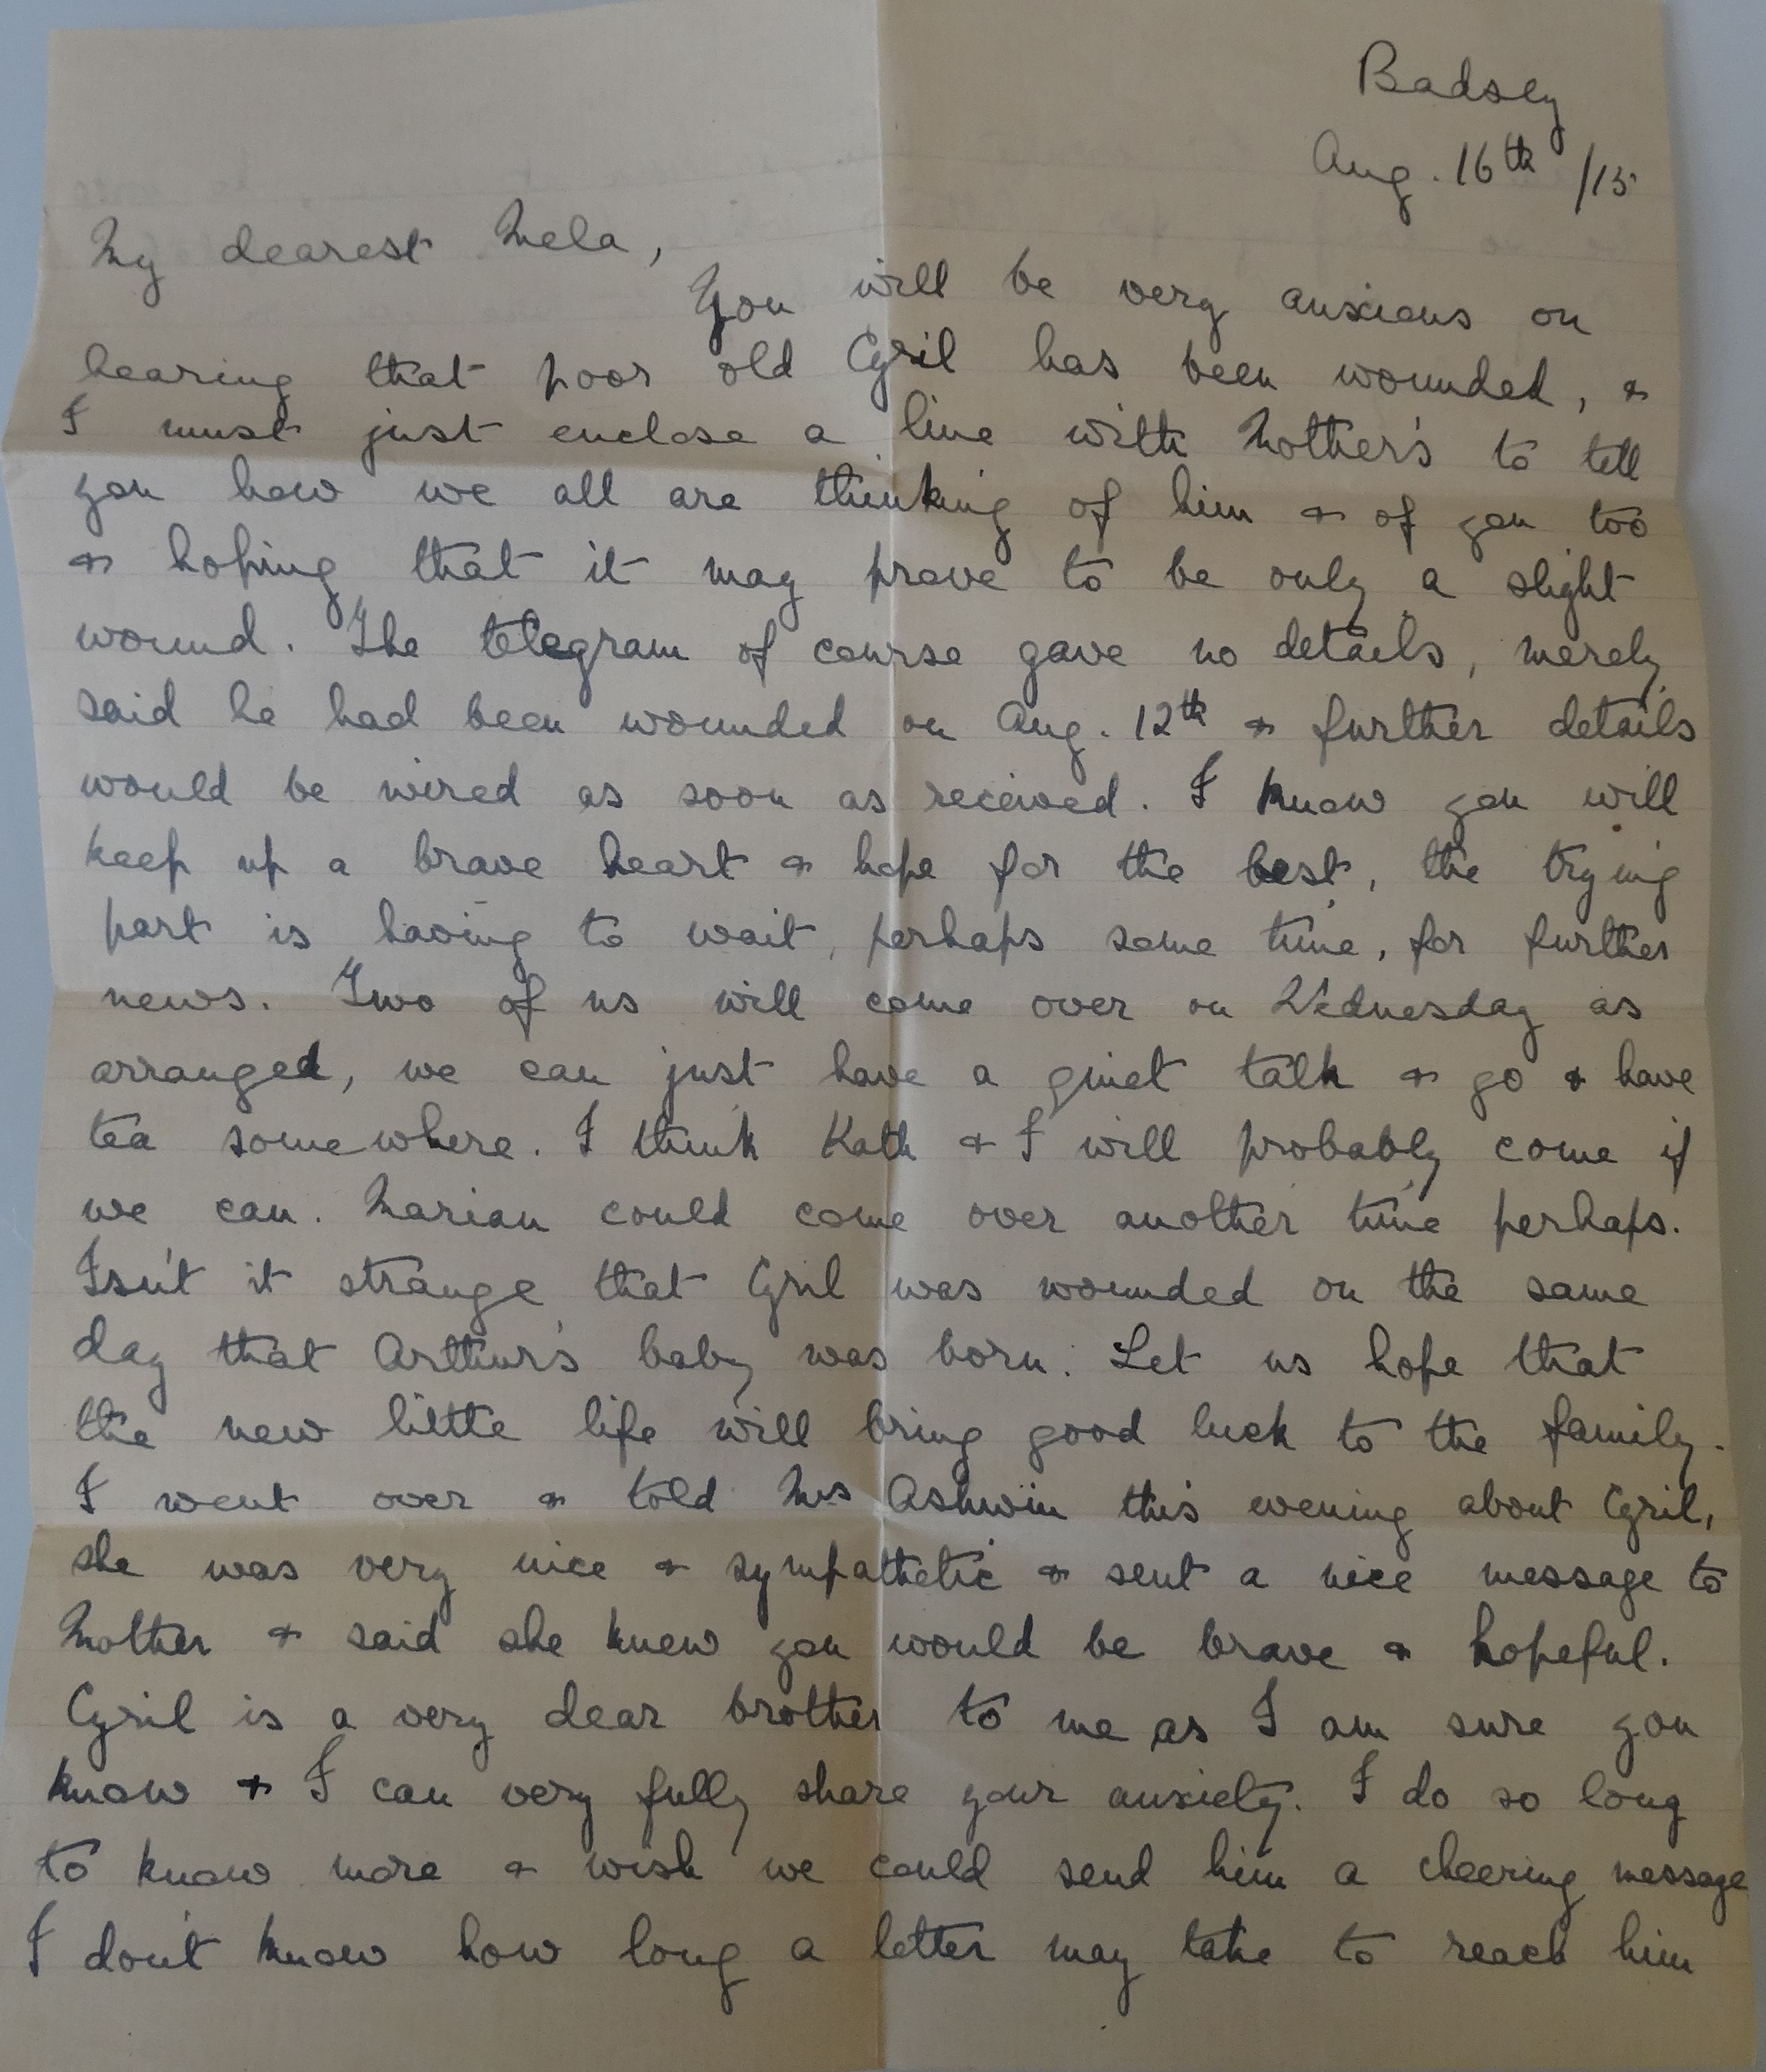 Badsey
Aug. 16th /15
My dearest Mela,
You will be very anxious on
hearing that poor old Cyril has been wounded, &
I must just enclose a line with Mother's to tell
you how we all are thinking of him & of you too
& hoping that it may prove to be only a slight
wound. The telegram of course gave no details, merely
said he had been wounded on Aug. 12th & further details
would be wired as soon as received. I know you will
keep up a brave heart & hope for the best, the trying
part is having to wait, perhaps some time, for further
news. Two of us will come over on Wednesday as
arranged, we can just have a quiet talk & go & have
tea somewhere. I think Kath & I will probably come if
we can. Marian could come over another time perhaps.
Isn't it strange that Cyril was wounded on the same
day that Arthur's baby was born. Let us hope that
the new little life will bring good luck to the family.
I went over & told Mrs Ashwin this evening about Cyril,
she was very nice & sympathetic & sent a nice message to
Mother & said she knew you would be brave & hopeful.
Cyril is a very dear brother to me as I am sure you
know & I can very fully share your anxiety. I do so long
to know more & wish we could send him a cheering message
I don't know how long a letter may take to reach him